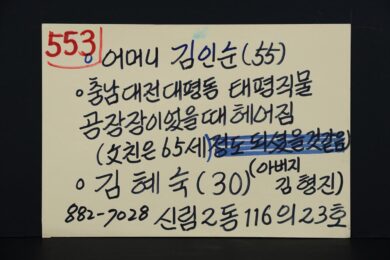 553
○ 어머니 김인순(55)
○ 충남 대전 대평동 태평직물
공장장이었을때 헤어짐
(父친은 65세)정도 되셨을것같음)
○ 김혜숙(30) (아버지 김형진)
882-7028 신림2동 116의 23호